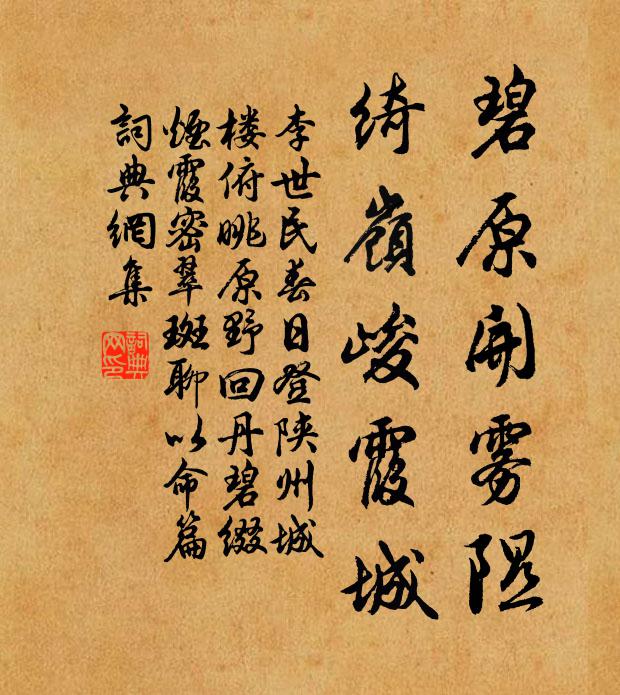 碧原开雾隰
绮嶺峻霞城
李世民春日登陕州城
楼俯眺原野回丹碧缀
煙霞密翠斑聊以命篇
詞典網集
詞典
网印